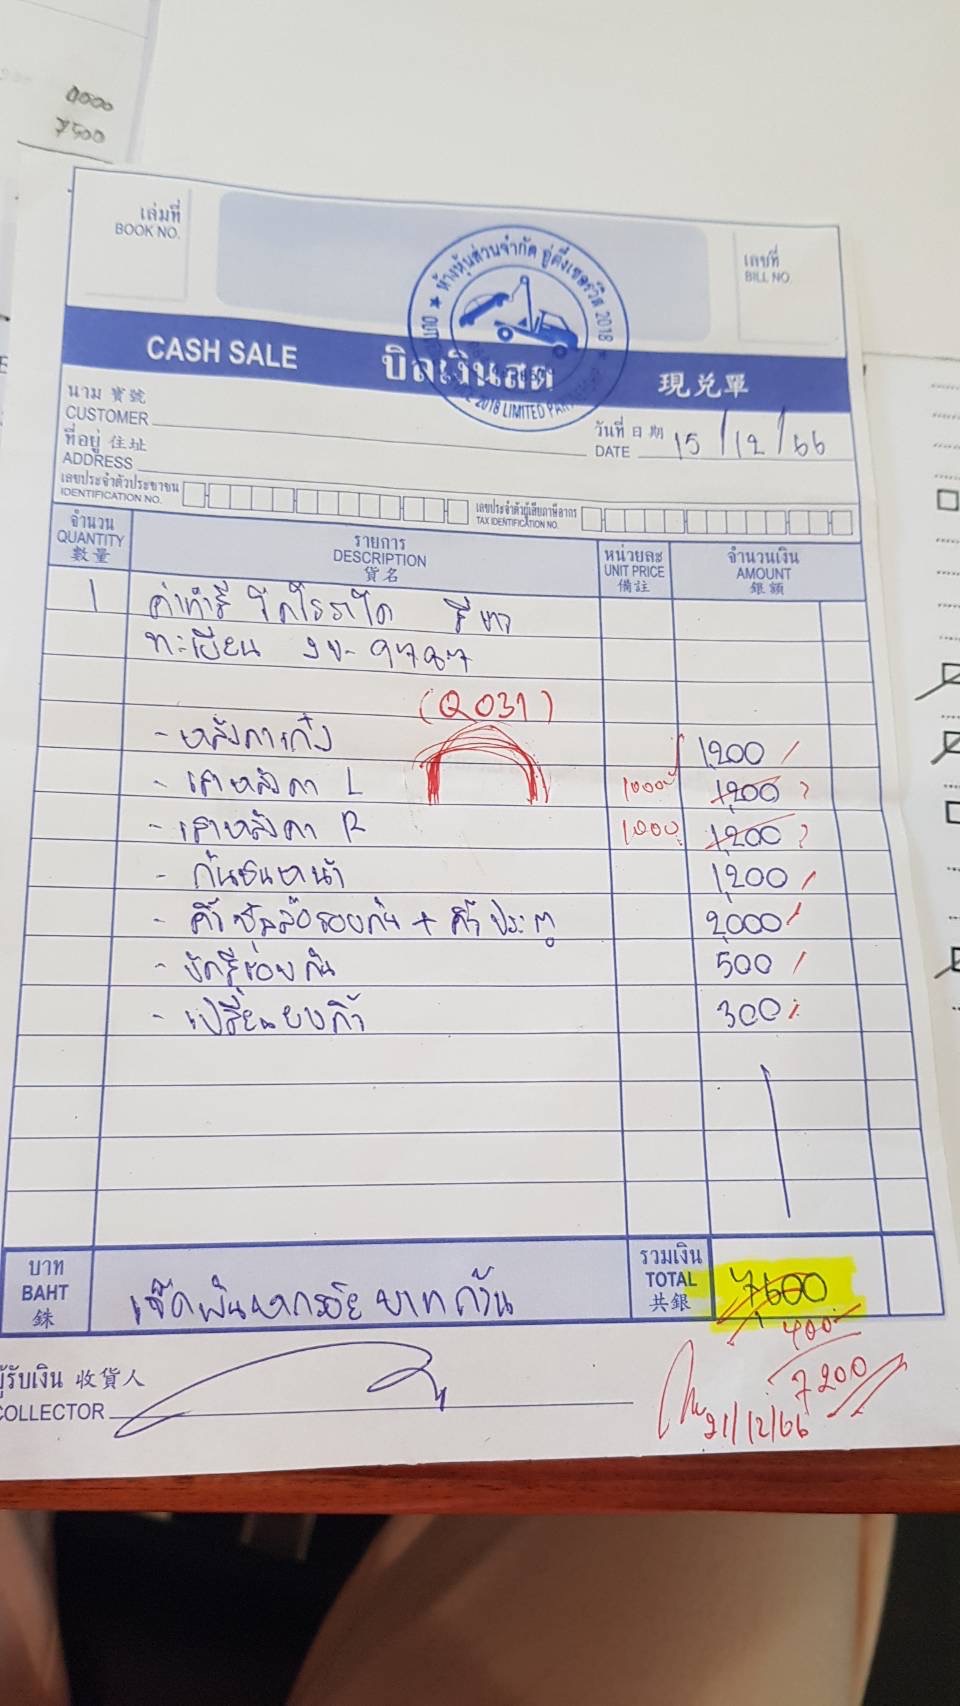 0000
7500
เล่มที่
BOOK NO.
ห้างหุ้นส่วนจำกัด อู่ตึ๋งเซอร์วิส 2018
2018 LIMITED
เลขที่
BILL NO.
CASH SALE บิลเงินสด 現兑單
นาม 寶號
CUSTOMER
ที่อยู่ 住址
ADDRESS
วันที่ 日期
DATE 15/12/66
เลขประจำตัวประชาชน
IDENTIFICATION NO.
เลขประจำตัวผู้เสียภาษีอากร
TAX IDENTIFICATION NO.
จำนวน
QUANTITY
數量
รายการ
DESCRIPTION
貨名
หน่วยละ
UNIT PRICE
備註
จำนวนเงิน
AMOUNT
銀額
1 ค่าทำสี วีโก้ สีเทา
ทะเบียน
(Q031)
- หลังคาเก๋ง 1,200 /
- เสาหลังคา L 1000 1,200 ?
- เสาหลังคา R 1000 1,200 ?
- กันชนหน้า 1,200 /
- คิ้วซุ้มล้อรอบคัน + คิ้วประตู 2,000 /
- ขัดสีรอบคัน 500 /
- เปลี่ยนยางคิ้ว 300 /
บาท
BAHT
銖
เจ็ดพันหกร้อยบาทถ้วน
รวมเงิน
TOTAL
共銀
7,600
400
7200
ผู้รับเงิน 收貨人
COLLECTOR
21/12/66